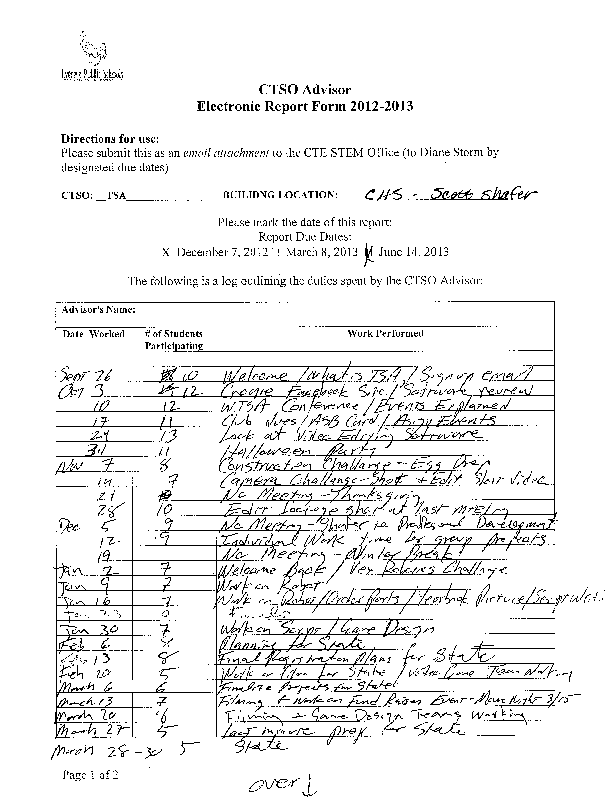 Public Schools
CTSO Advisor
Electronic Report Form 2012-2013
Directions for use:
Please submit this as an email attachment to the CTE STEM Office (to Diane Storm by
designated due dates)
CTSO: __TSA__ BUILIDNG LOCATION: CHS - Scott Shafer
Please mark the date of this report:
Report Due Dates:
X December 7, 2012 March 8, 2013 June 14, 2013
The following is a log outlining the duties spent by the CTSO Advisor:
Advisor's Name:
Date Worked # of Students Participating Work Performed
Sept 26 10 Welcome / What is TSA / Sign up email
Oct 3 12 Create Facebook Site / Software review
10 12 WTSA Conference / Events Explained
17 11 Club Dues / ASB Card / Assign Events
24 13 Look at Video Editing Software
31 11 Halloween Party
Nov 7 8 Construction Challange - Egg Drop
14 7 Camera Challange - Shoot + Edit Short Video
21 No Meeting - Thanksgiving
28 10 Edit footage shot at last meeting
Dec 5 9 No Meeting - Shafer in Professional Development
12 9 Individual Work time for group projects
19 No Meeting - Winter Break
Jan 2 7 Welcome Back / Vex Robotics Challenge
Jan 9 7 Work on Robot
Jan 16 7 Work on Robot / Order Parts / Yearbook Picture / Script Writ
Jan 23
Jan 30 7 Work on Script / Game Design
Feb 6 8 Planning for State
Feb 13 8 Final Registration Plans for State
Feb 20 5 Work on Film for State / Video Game Team Working
March 6 6 Finalize Projects for State
March 13 7 Filming + work on Fund Raiser Event - Movie Night 3/15
March 20 6 Filming + Game Design Teams Working
March 27 5 Last minute prep for State
March 28-30 5 State
Page 1 of 2
over ↓